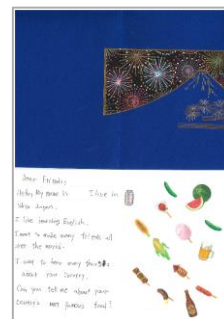 Dear Friends,
Hello, My name is I live in
Japan.
I like learning English.
I want to make many friends all
over the world.
I want to know many things
about your country.
Can you tell me about your
country's most famous food?